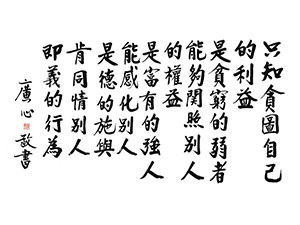 只知貪圖自己
的利益
是貧窮的弱者
能夠関照別人
的權益
是富有的強人
能感化別人
是德的施與
肯同情別人
即義的行為
廣心敬書